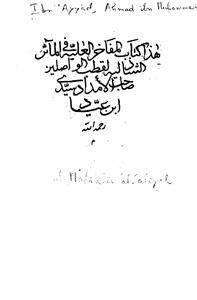 Ibn 'Ayyad, Ahmad ibn Muhammad
هذا كتاب المفاخر العلية في المآثر
الشاذلية لقطب الواصلين
صاحب الأمداد سيدي
ابن عياد
رحمه الله
م